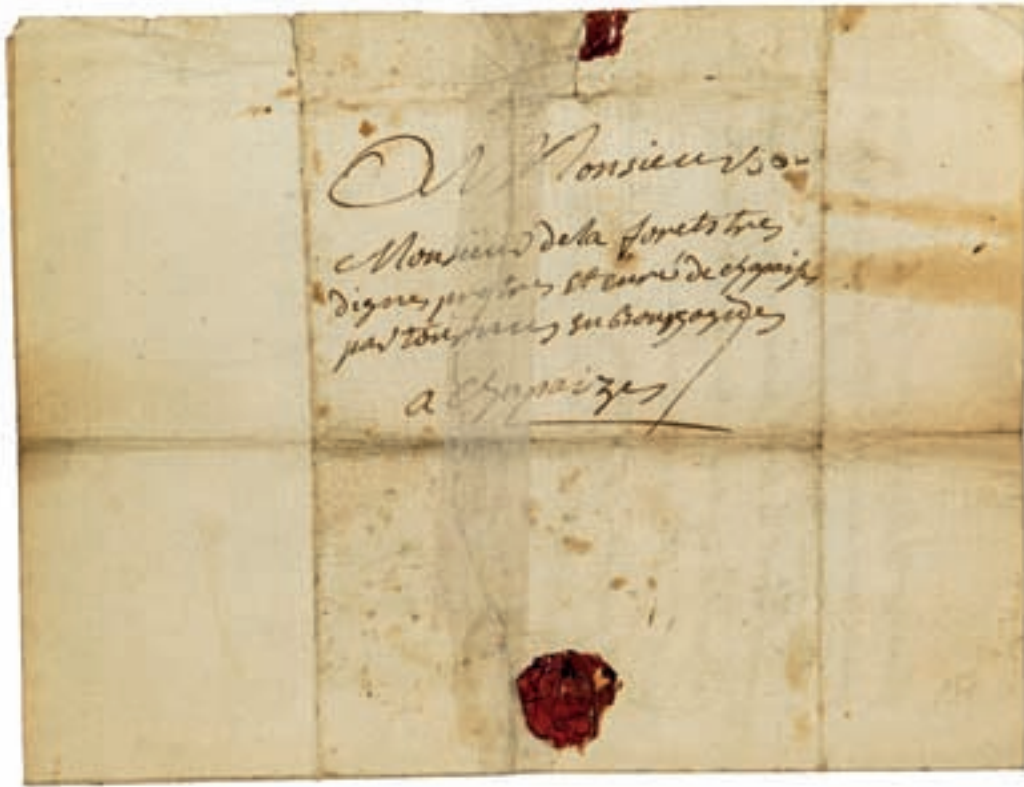 A Monsieur
Monsieur de la forets tres
digne pretres et curé de chapaize
par tournus en Bourgogne
a Chapaize